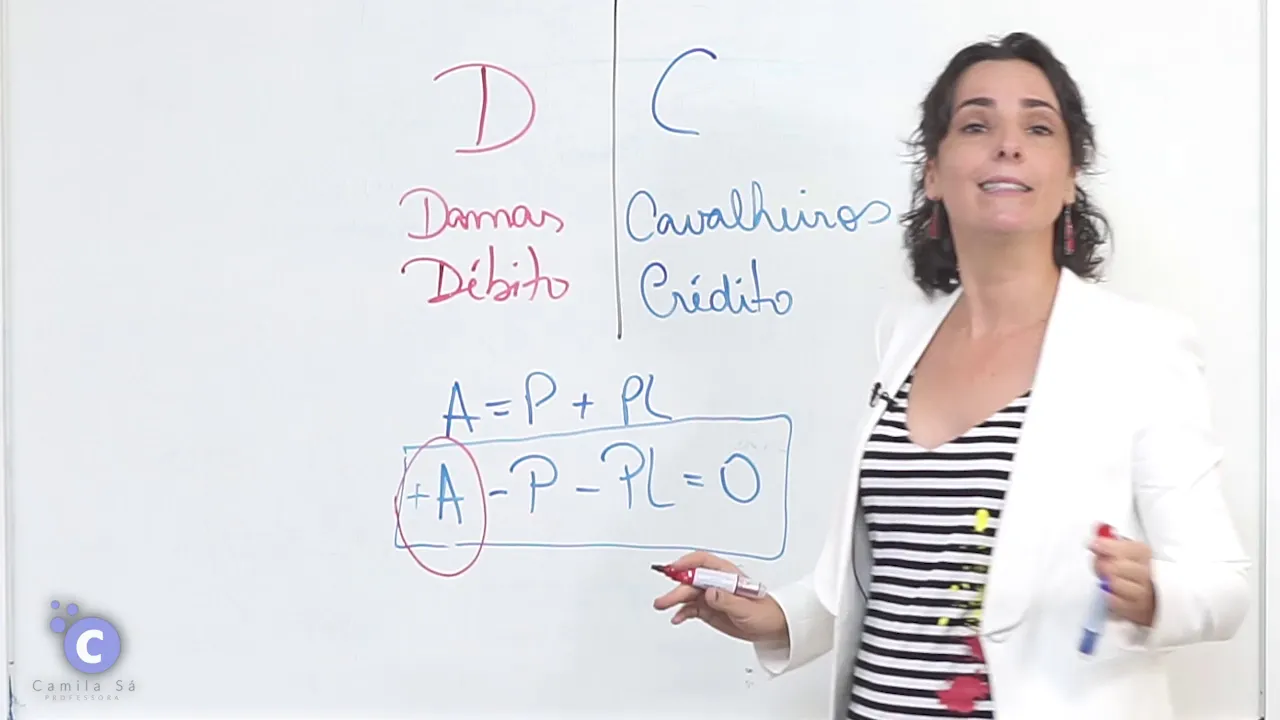 D C
Damas Cavalheiros
Débito Crédito
A = P + PL
+A - P - PL = 0
C
Camila Sá
PROFESSORA